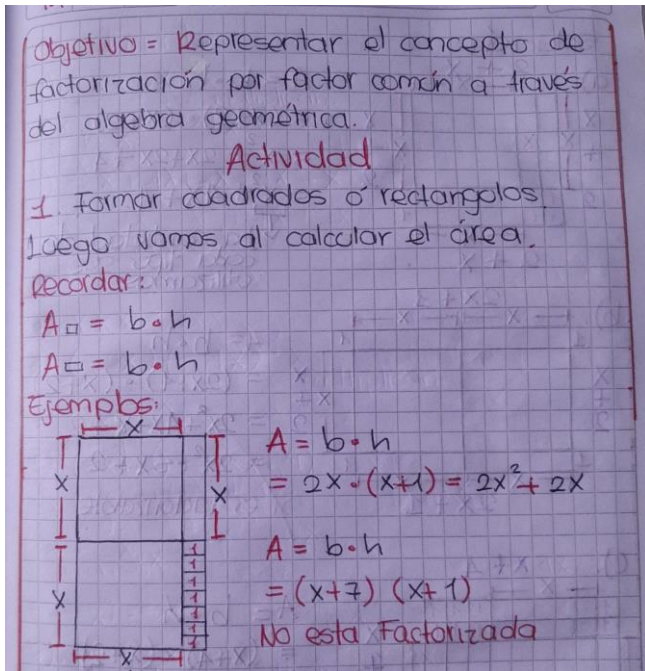 Objetivo = Representar el concepto de
factorización por factor común a través
del algebra geométrica.
Actividad
1. Formar cuadrados ó rectangulos.
Luego vamos al calcular el área.
Recordar:
A□ = b•h
A▭ = b•h
Ejemplos:
x
x
x
A = b•h
= 2x•(x+1) = 2x²+2x
1
1
1
1
1
1
1
x
A = b•h
= (x+7) (x+1)
No esta Factorizada
x